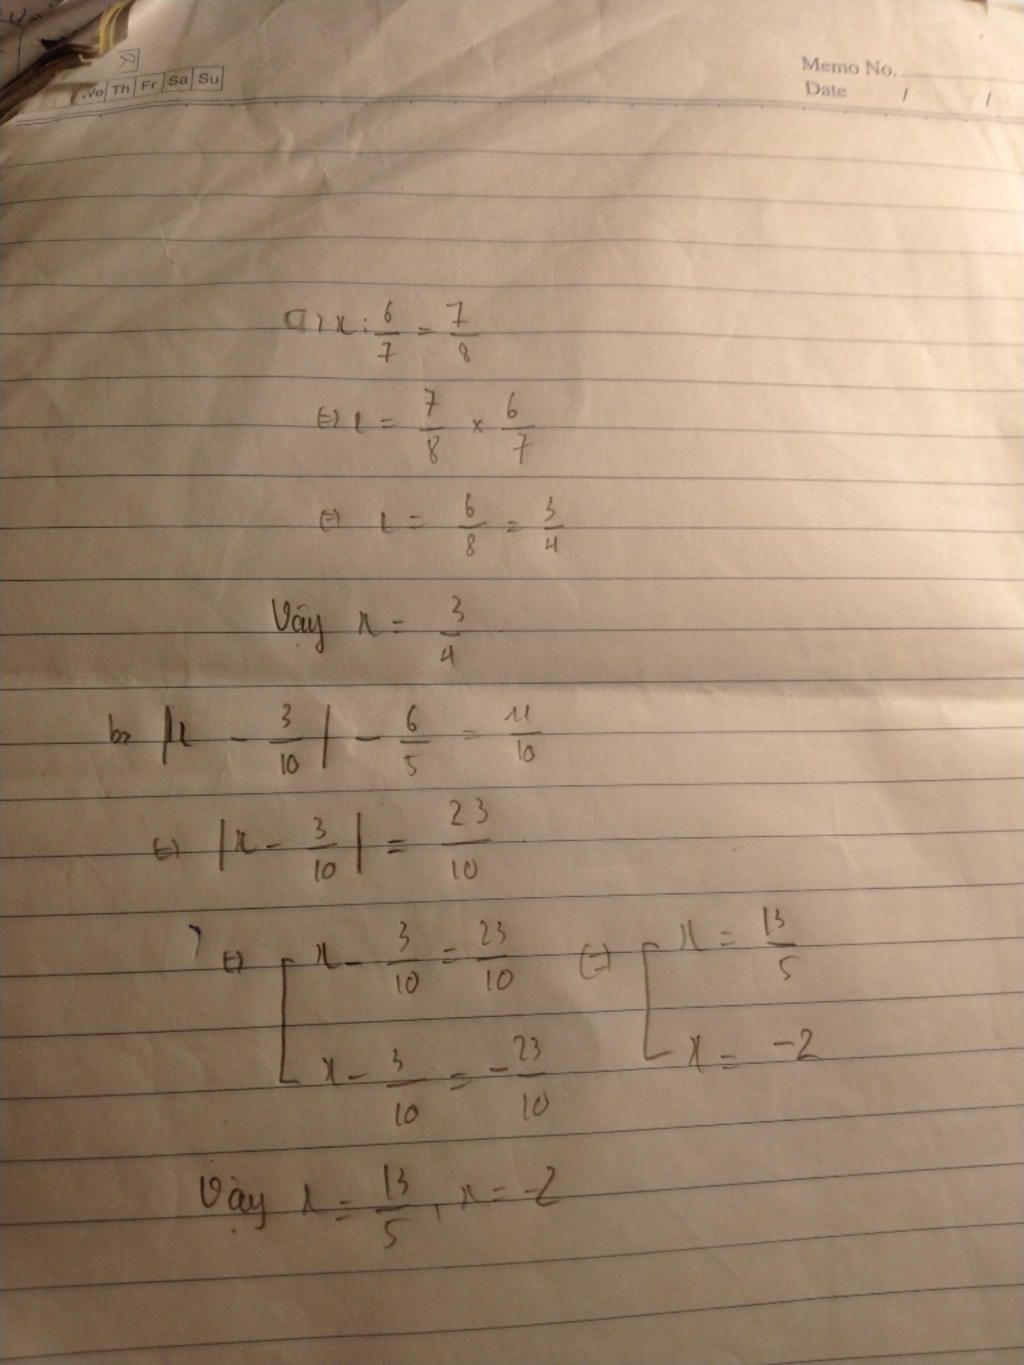 We Th Fr Sa Su
Memo No.
Date / /
a) x : 6/7 = 7/8
⇔ x = 7/8 × 6/7
⇔ x = 6/8 = 3/4
Vậy x = 3/4
b) |x - 3/10| - 6/5 = 11/10
⇔ |x - 3/10| = 23/10
⇔ [ x - 3/10 = 23/10 ⇔ [ x = 13/5
x - 3/10 = -23/10 x = -2
Vậy x = 13/5, x = -2